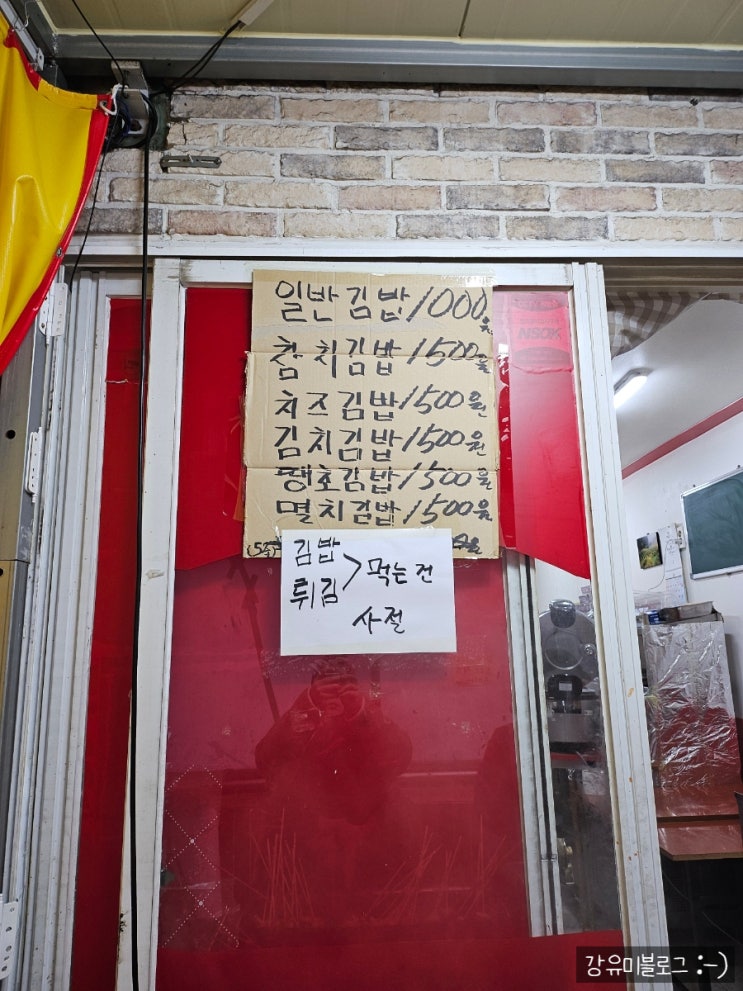 일반김밥 1000원
참치김밥 1500원
치즈김밥 1500원
김치김밥 1500원
땡초김밥 1500원
멸치김밥 1500원
김밥
튀김 > 먹는건
사절
강유미블로그 :-)